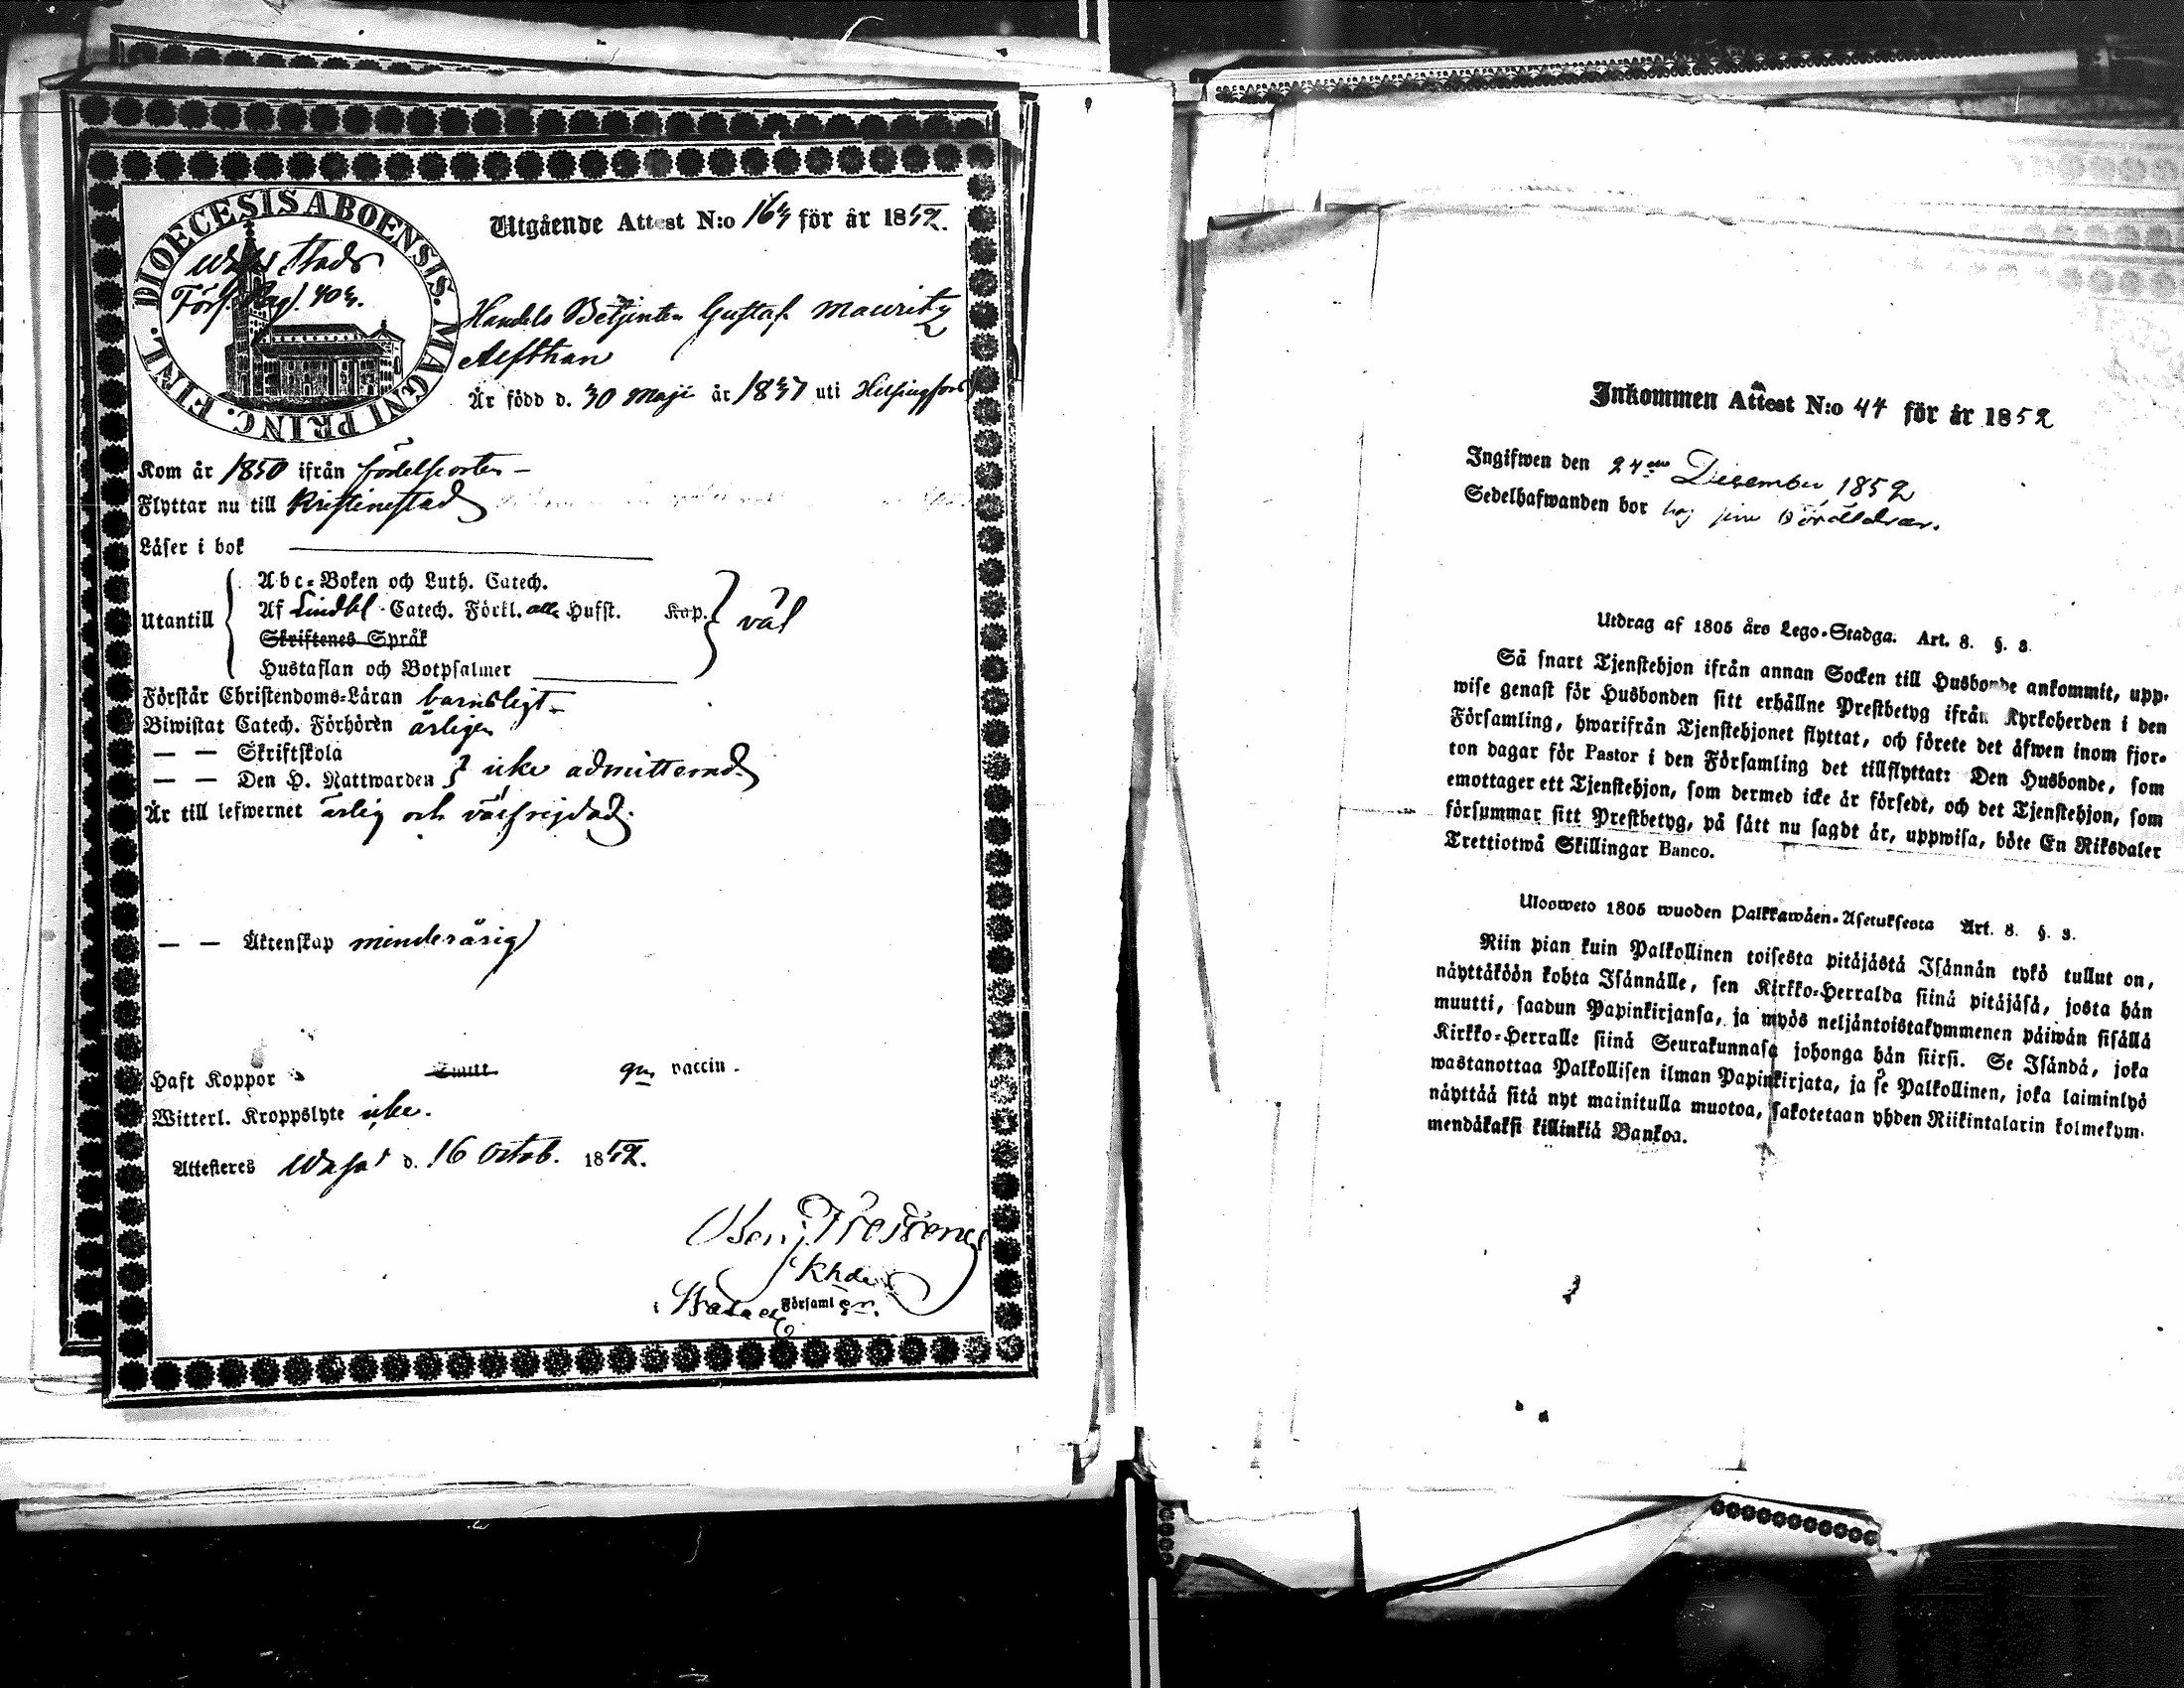 DIOECESIS ABOENSIS. MAGNI PRINC. FINL.
Wasa Stads
Förs. Pag. 403.
Utgående Attest N:o 163 för år 1852.
Handels Betjenten Gustaf Mauritz
Alfthan
Är född d. 30 Maji år 1837 uti Helsingfors
Kom år 1850 ifrån födelseorten –
Flyttar nu till Kristinestad
Läser i bok
Utantill
Abc-Boken och Luth. Catech.
Af Lindbl Catech. Förkl. alla Hufst. Kap. väl
Skriftenes Språk
Hustaflan och Botpsalmer
Förstår Christendoms-Läran barnsligt –
Biwistat Catech. Förhören årligen
— — Skriftskola
— — Den H. Nattwarden icke admitterad
Är till lefwernet ärlig och välfrejdad.
— — Äktenskap minderårig
Haft Koppor gm vaccin.
Witterl. Kroppslyte icke.
Attesteres Wasa d. 16 Octob. 1852.
Benj.
Khde
i Wasa Församl
Inkommen Attest N:o 44 för år 1852
Ingifwen den 24 December 1852
Sedelhafwanden bor hos sina Föräldrar.
Utdrag af 1805 års Lego-Stadga. Art. 8. §. 3.
Så snart Tjenstehjon ifrån annan Socken till Husbonde ankommit, upp-
wise genast för Husbonden sitt erhållne Prestbetyg ifrån Kyrkoherden i den
Församling, hwarifrån Tjenstehjonet flyttat, och förete det äfwen inom fjor-
ton dagar för Pastor i den Församling det tillflyttat: Den Husbonde, som
emottager ett Tjenstehjon, som dermed icke är försedt, och det Tjenstehjon, som
försummar sitt Prestbetyg, på sätt nu sagdt är, uppwisa, böte En Riksdaler
Trettiotwå Skillingar Banco.
Ulosweto 1805 wuoden Palkkawäen-Asetuksesta Art. 8. §. 3.
Niin pian kuin Palkollinen toisesta pitäjästä Isännän tykö tullut on,
näyttäköön kohta Isännälle, sen Kirkko-Herralda siinä pitäjäsä, josta hän
muutti, saadun Papinkirjansa, ja myös neljäntoistakymmenen päiwän sisällä
Kirkko-Herralle siinä Seurakunnasa johonga hän siirsi. Se Isändä, joka
wastanottaa Palkollisen ilman Papinkirjata, ja se Palkollinen, joka laiminlyö
näyttää sitä nyt mainitulla muotoa, sakotetaan yhden Riikintalarin kolmekym-
mendäkaksi killinkiä Bankoa.